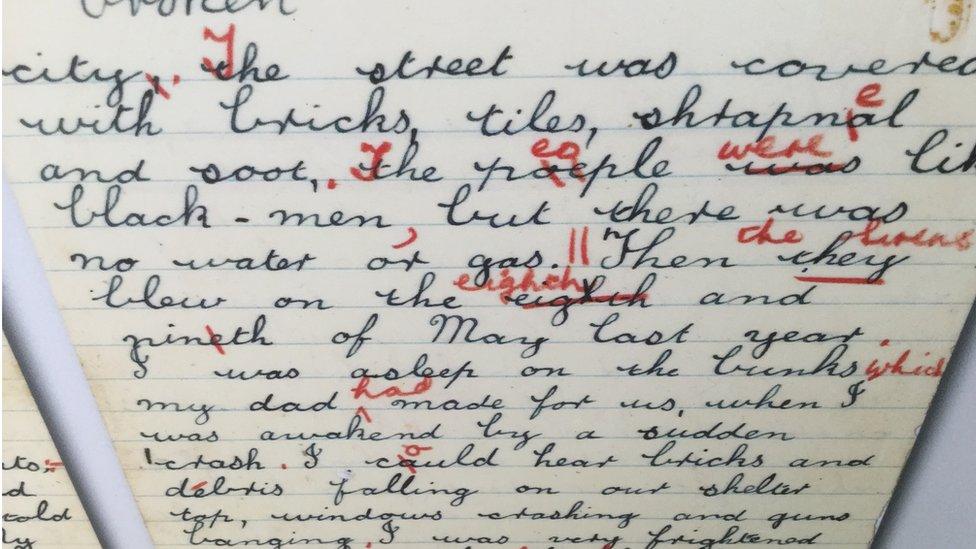 broken
city, . The street was covered
with bricks, tiles, shrapnal e
and soot, . The poeple eo was were lik
black-men, but there was
no water or gas. || "Then they the sirens
blew on the eigth eighth and
nineth of May last year.
I was asleep on the bunks which
my dad had made for us, when I
was awakend by a sudden
crash. I cauld o hear bricks and
débris falling on our shelter
top, windows crashing and guns
banging. I was very frightened
to,
d
told
ly